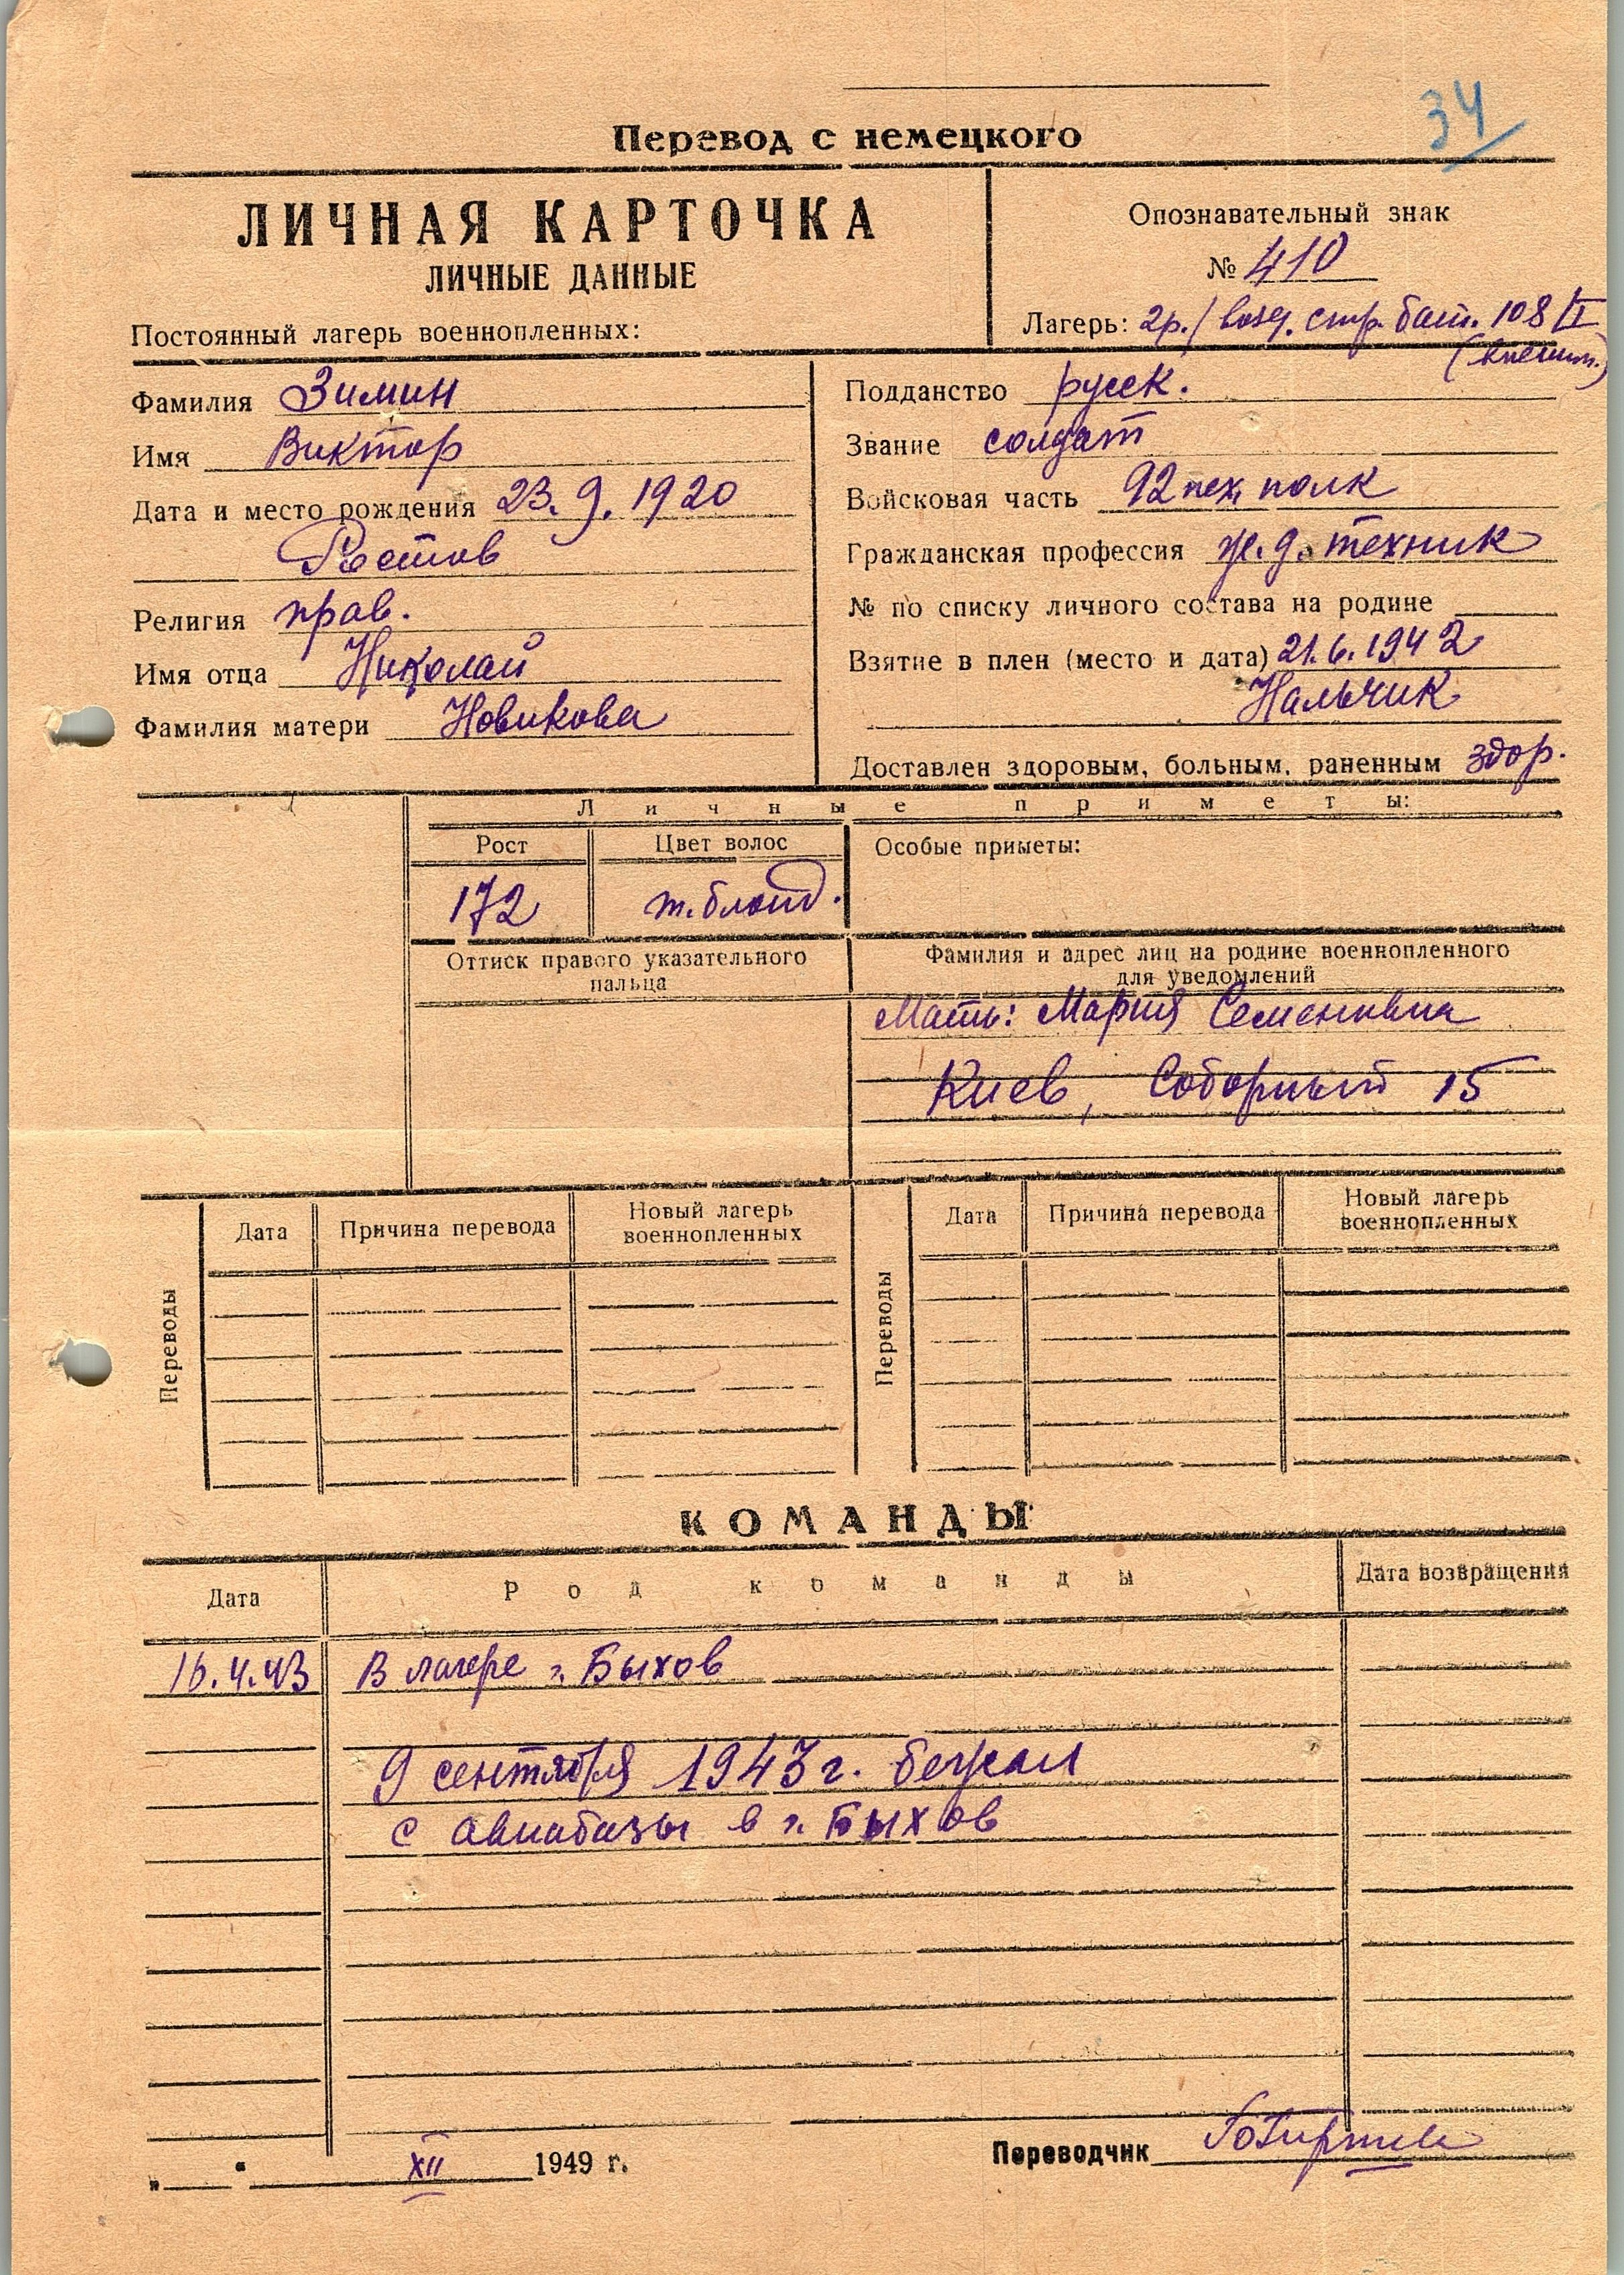 34
Перевод с немецкого
ЛИЧНАЯ КАРТОЧКА
ЛИЧНЫЕ ДАННЫЕ
Постоянный лагерь военнопленных:
Опознавательный знак
№ 410
Лагерь: 2р./ возд. стр. бат. 108/II
Фамилия Зимин
Имя Виктор
Дата и место рождения 23.9.1920
Ростов
Религия прав.
Имя отца Николай
Фамилия матери Новикова
Подданство русск.
Звание солдат
Войсковая часть 92 пех. полк
Гражданская профессия ж.д. техник
№ по списку личного состава на родине
Взятие в плен (место и дата) 21.6.1942
Нальчик
Доставлен здоровым, больным, раненным здор.
Личные приметы:
Рост
Цвет волос
Особые приметы:
172
т. блонд.
Оттиск правого указательного
пальца
Фамилия и адрес лиц на родине военнопленного
для уведомлений
Мать: Мария Семеновна
Киев, Соборный 15
Переводы
Дата
Причина перевода
Новый лагерь
военнопленных
Переводы
Дата
Причина перевода
Новый лагерь
военнопленных
КОМАНДЫ
Дата
Род команды
Дата возвращения
16.4.43 В лагере г. Быхов
9 сентября 1943 г. бежал
с авиабазы в г. Быхов
„ “ XII 1949 г.
Переводчик